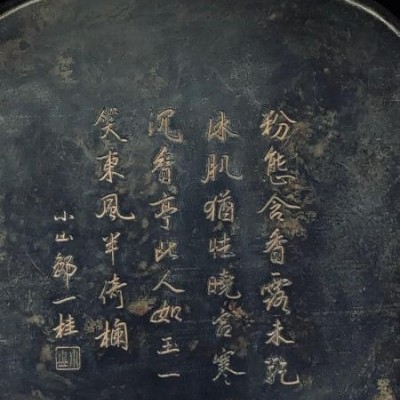 粉態含香露未乾
冰肌猶怯曉宮寒
沉香亭北人如玉一
笑東風半倚欄
小山鄒一桂